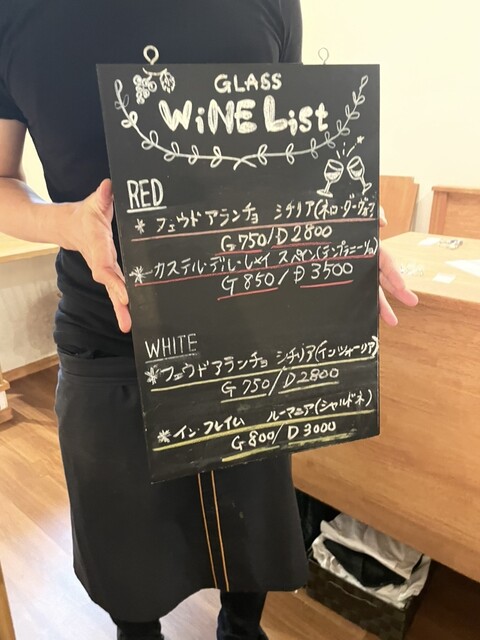 GLASS
WiNE List
RED
* フェウドアランチョ シチリア(ネロ・ダーヴォラ)
G 750/D 2800
* カステル・デル・レメイ スペイン(テンプラニーリョ)
G 850/D 3500
WHITE
* フェウドアランチョ シチリア(インツォーリア)
G 750/D 2800
* イン・フレイム ルーマニア(シャルドネ)
G 800/D 3000